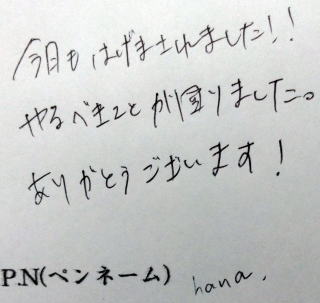 今日も はげまされました!!
やるべきことが固まりました。
ありがとうございます!
P.N(ペンネーム) hana.